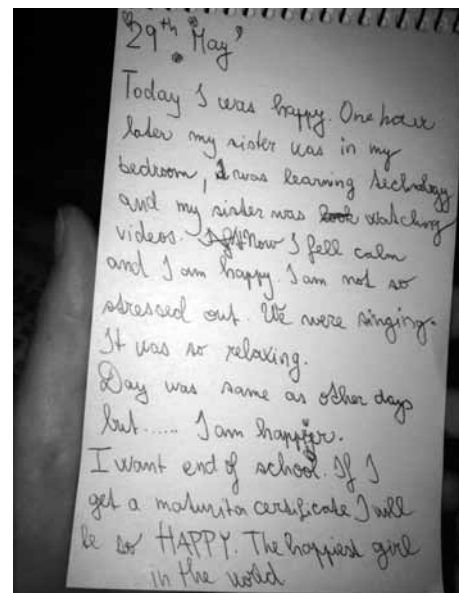 29th May
Today I was happy. One hour
later my sister was in my
bedroom, I was learning technology
and my sister was look watching
videos. Aft Now I fell calm
and I am happy. I am not so
stresced out. We were singing.
It was so relaxing.
Day was same as other days
but...... I am happier.
I want end of school. If I
get a maturita certificate I will
be so HAPPY. The happiest girl
in the wolid